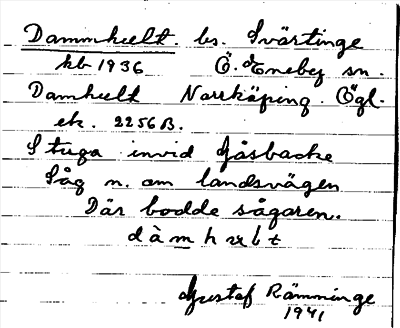 Dammhult. bs. Svärtinge
kb 1936 Ö. Eneby sn.
Damhult Norrköping Ögl.
ek. 2256B.
Stuga invid Gåsbacke
Låg n. om landsvägen
Där bodde sågaren.
Gustaf Rämminge
1941